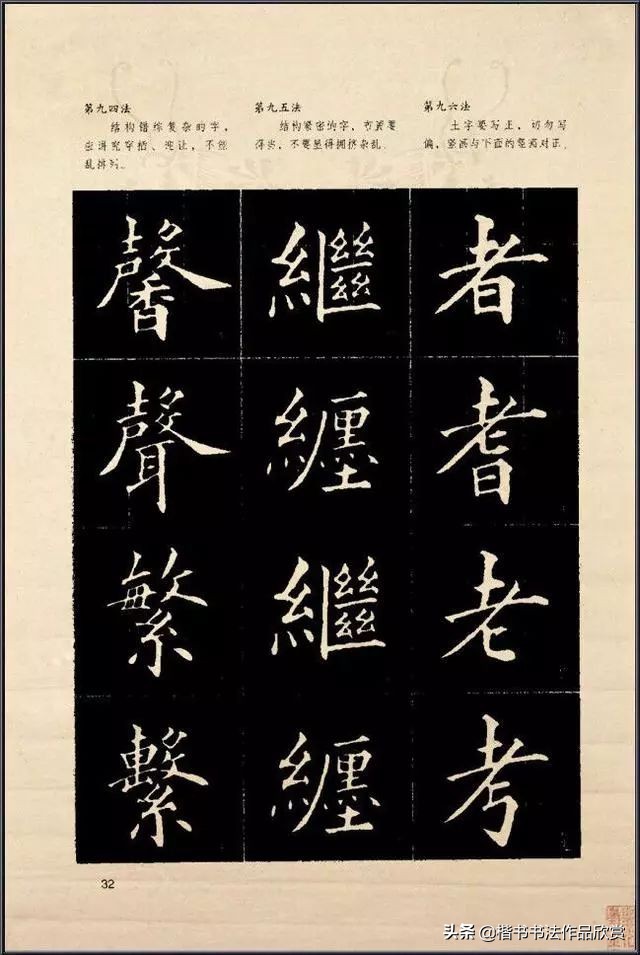 第九四法
结构错综复杂的字，
应讲究穿插、避让，不能
乱排列。
第九五法
结构紧密的字，布置要
得当，不要显得拥挤杂乱。
第九六法
土字要写正，切勿写
偏，竖画与下面的竖画对正。
馨 繼 者
聲 纏 耆
繁 繼 老
繫 纏 考
32
头条 @楷书书法作品欣赏